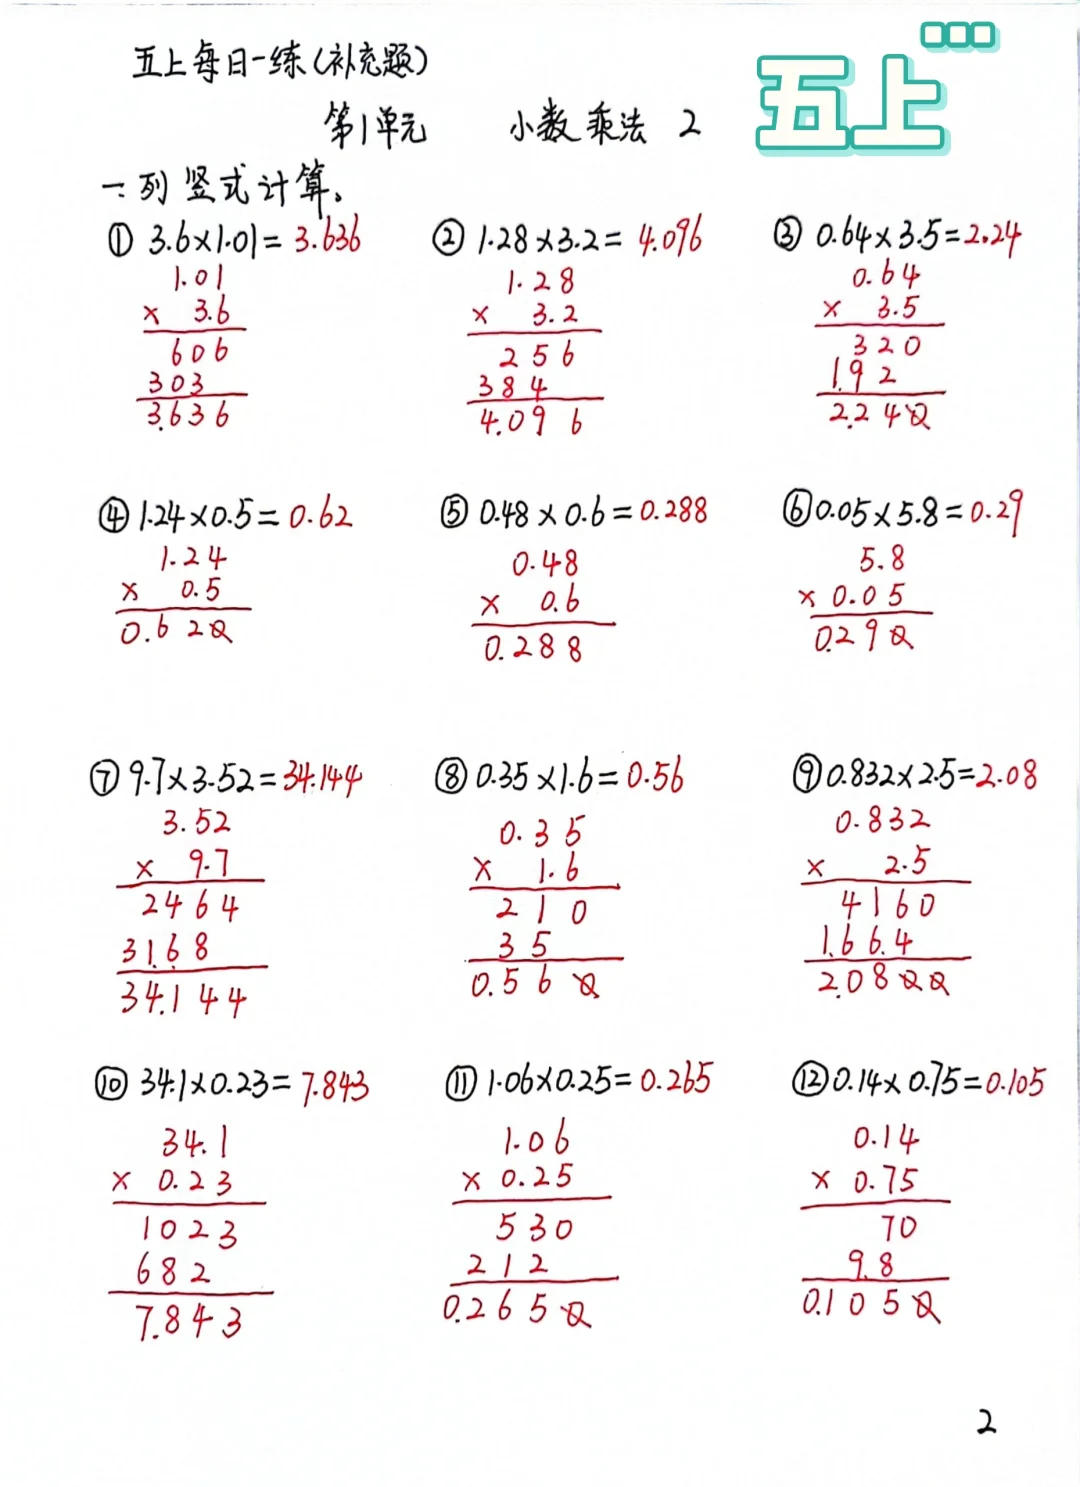 五上每日一练(补充题)
五上
第1单元 小数乘法 2
一:列竖式计算。
① 3.6×1.01=3.636 ② 1.28×3.2=4.096 ③ 0.64×3.5=2.24
1.01 1.28 0.64
× 3.6 × 3.2 × 3.5
606 256 320
303 384 192
3.636 4.096 2.240
④ 1.24×0.5=0.62 ⑤ 0.48×0.6=0.288 ⑥ 0.05×5.8=0.29
1.24 0.48 5.8
× 0.5 × 0.6 × 0.05
0.620 0.288 0.290
⑦ 9.7×3.52=34.144 ⑧ 0.35×1.6=0.56 ⑨ 0.832×2.5=2.08
3.52 0.35 0.832
× 9.7 × 1.6 × 2.5
2464 210 4160
3168 35 1664
34.144 0.560 2.0800
⑩ 34.1×0.23=7.843 ⑪ 1.06×0.25=0.265 ⑫ 0.14×0.75=0.105
34.1 1.06 0.14
× 0.23 × 0.25 × 0.75
1023 530 70
682 212 9.8
7.843 0.2650 0.1050
2